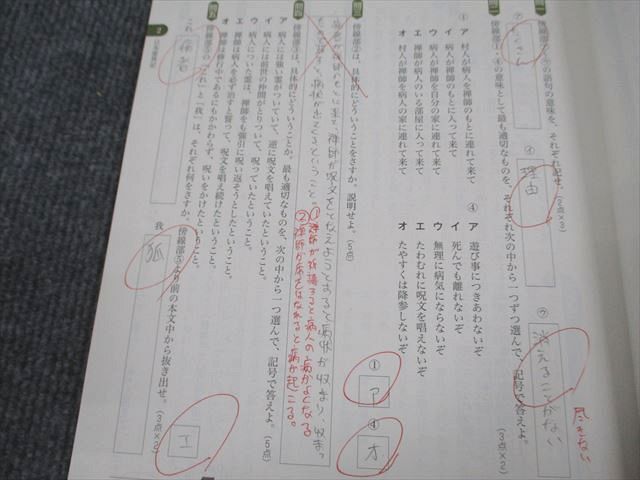 の語句の意味を、それぞれ記せ。(3点×3)
㋑
理由
㋒
消えることがない
尽きない
の意味として最も適切なものを、それぞれ次の中から一つずつ選んで、記号で答えよ。
(3点×2)
①
ア 村人が病人を禅師のもとに連れて来て
イ 病人が禅師のもとに入って来て
ウ 病人が禅師を自分の家に連れて来て
エ 禅師が病人のいる部屋に入って来て
オ 村人が禅師を病人の家に連れて来て
④
ア 遊び事につきあわないぞ
イ 死んでも離れないぞ
ウ 無理に病気にならないぞ
エ たわむれに呪文を唱えないぞ
オ たやすくは降参しないぞ
①
ア
④
オ
傍線部②は、具体的にどういうことをさすか。説明せよ。(5点)
禅師が呪文をとなえようとすると病状が収まり、
①禅師が祈禱すると病人の病がよくなる
②禅師が床をはなれると病が起こる。
傍線部③は、具体的にどういうことか。最も適切なものを、次の中から一つ選んで、記号で答えよ。(5点)
ア 病人には強い霊がついていて、逆に呪文を唱えていたということ。
イ 病人には前世の仲間がとりついて、呪っていたということ。
ウ 病人についた霊は、禅師をも強引に呪い返そうとしたということ。
エ 禅師は病人を必ず治すと誓って、呪文を唱え続けたということ。
オ 禅師は修行中であるにもかかわらず、呪いをかけたということ。
エ
傍線部⑤の「これ」と「我」は、それぞれ何をさすか。傍線部⑤より前の本文中から抜き出せ。(3点×2)
これ
病者
我
狐
2